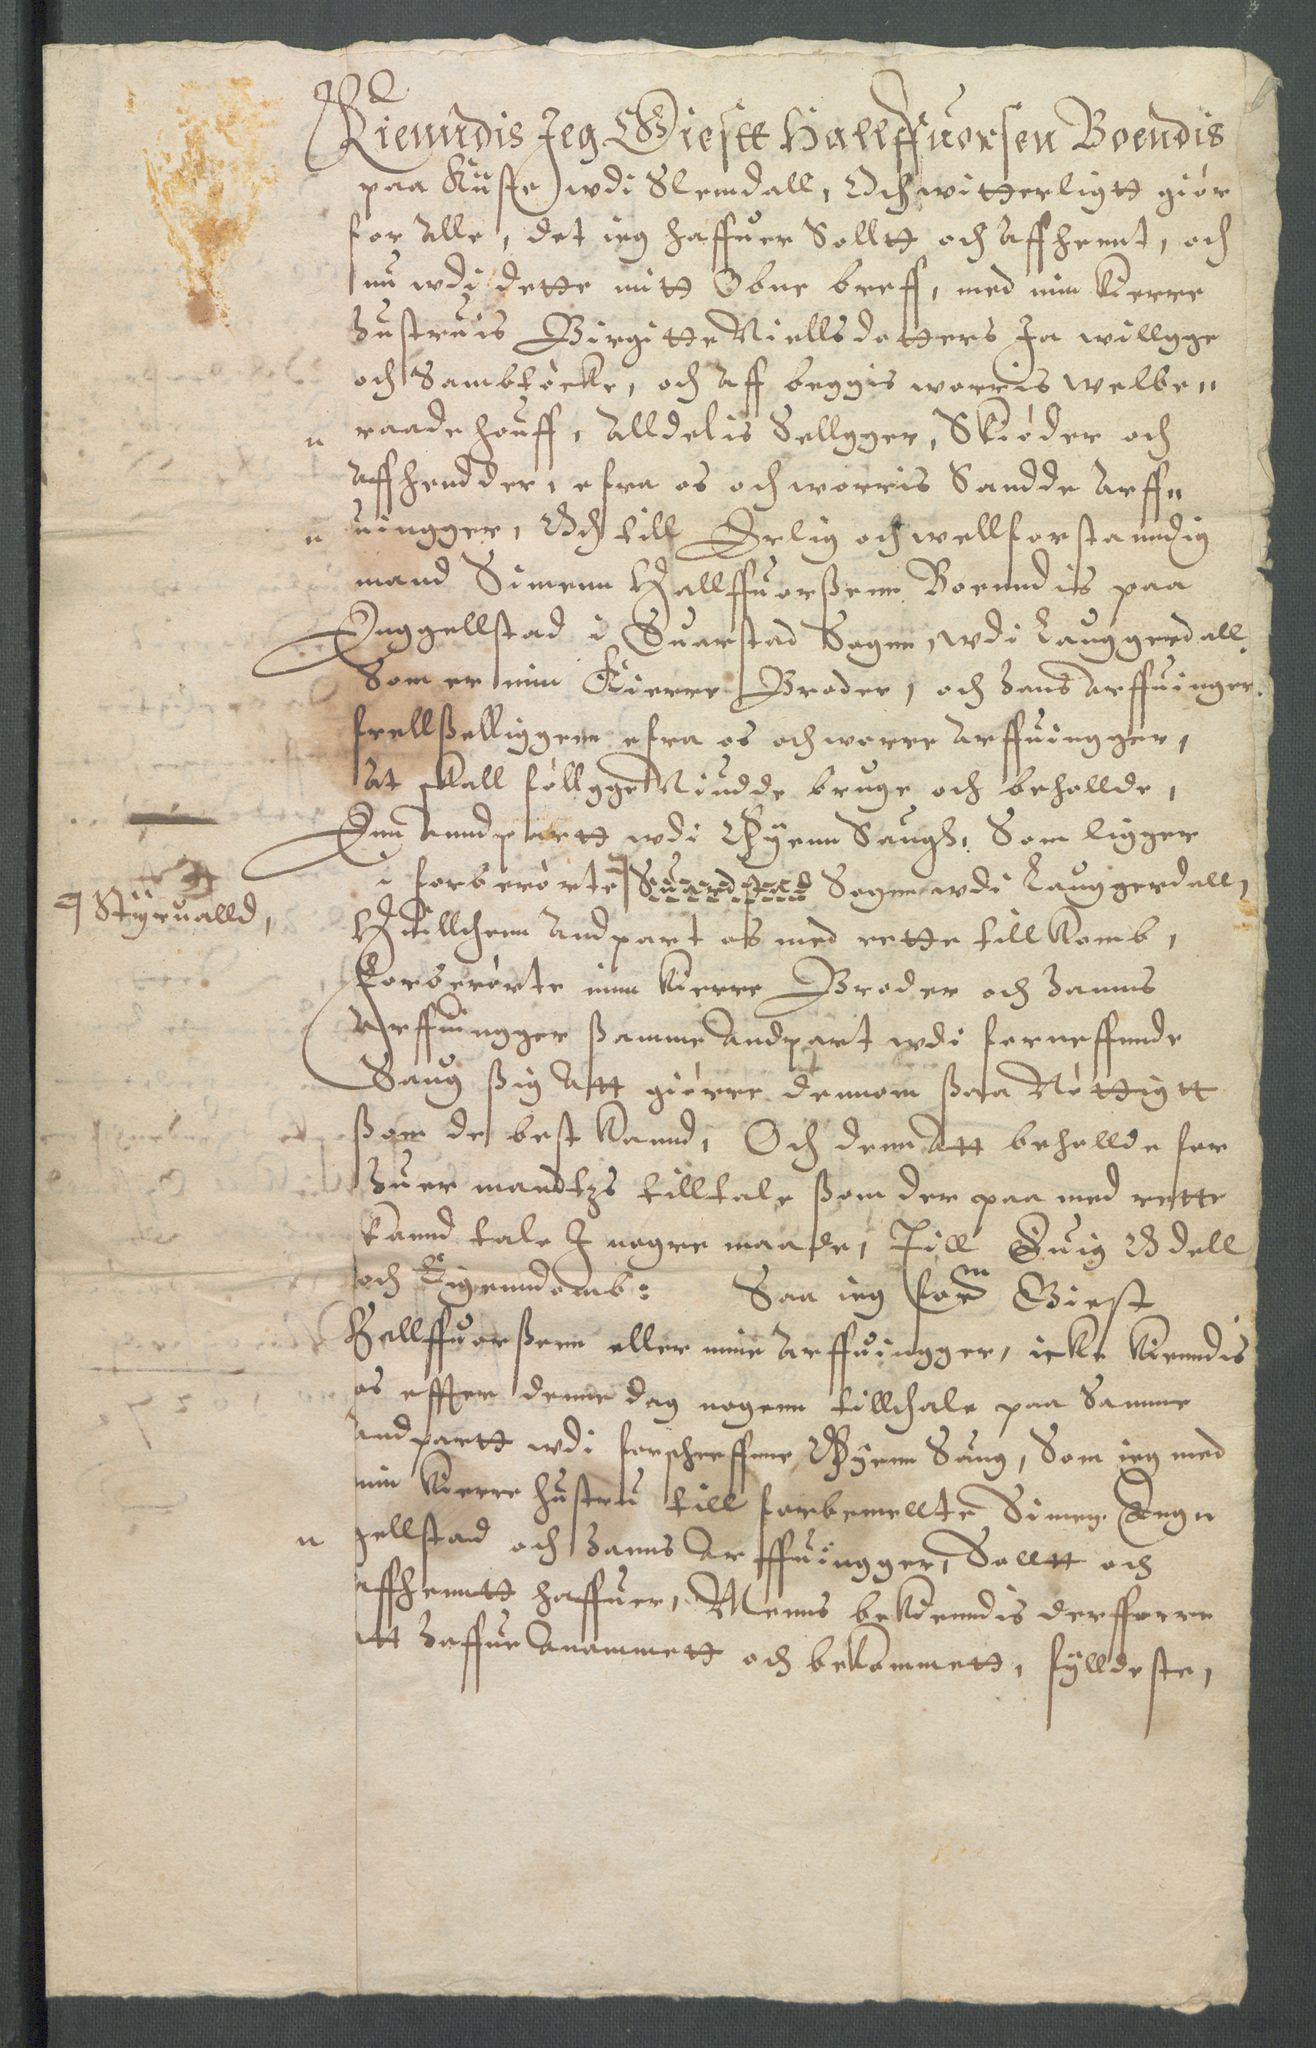 Kienndis Jeg Giestt Hallffuorsen Boendis
paa Kuste wdi Slemdall, Och witterligtt giør
for Alle, det ieg haffuer Solltt och Affhennt, och
nu wdi dette mitt Obne breff, med min kierre
Hustruis Birgitte Niellsdotters Ja willgge
och Sambtöcke, och Aff beggis worris welbe„
„ raade houff, Alldelis Sellgger, Skiøder och
Affhendder, efra os och worris Sandde Arff„
„ uingger, Och till Erlig och wellforstanndig
mand Simenn Hallffuorßenn Boenndis paa
Enggellstad i Suarstad Sogen, wdi Lauggerdall.
Som er min Kierre Broder, och Hans Arffuinger.
frellßelliggenn efra os och worre Arffuingger,
At skall föllgge Niudde bruge och behollde,
Enn Anndpartt wdi Byenn Saugh, Som ligger
i forberørte ꟻ Suardstad Sogen wdi Lauggerdall,
ꟻ Styrualld,
Huillchenn Andpart os med rette tillkomb,
Forberørte min kierre Broder och Hanns
Arffuingger ßamme Andpart wdi forneffnnde
Saug ßig Att giørre dennom ßaa Nøttigtt
ßom de best kannd, Och denn Att behollde for
Huer mandtzs tilltale ßom der paa med rette
kannd tale J nogre maade, Till Euig Odell
och Eigenndomb: Saa ieg for^m Giest
Hallffuorßenn eller mine Arffuingger, icke kienndis
os effter denne dag nogenn tillthale paa Samme
Andpartt wdi forscheffne Byenn Saug, Som ieg med
min kierre hustru till forbemellte Simen Eng„
„ gellstad och Hanns Arffuingger, Solltt och
Affhenntt haffuer, Menns bekienndis derfforre
Att Haffue Anammett och bekommett, fylldeste,